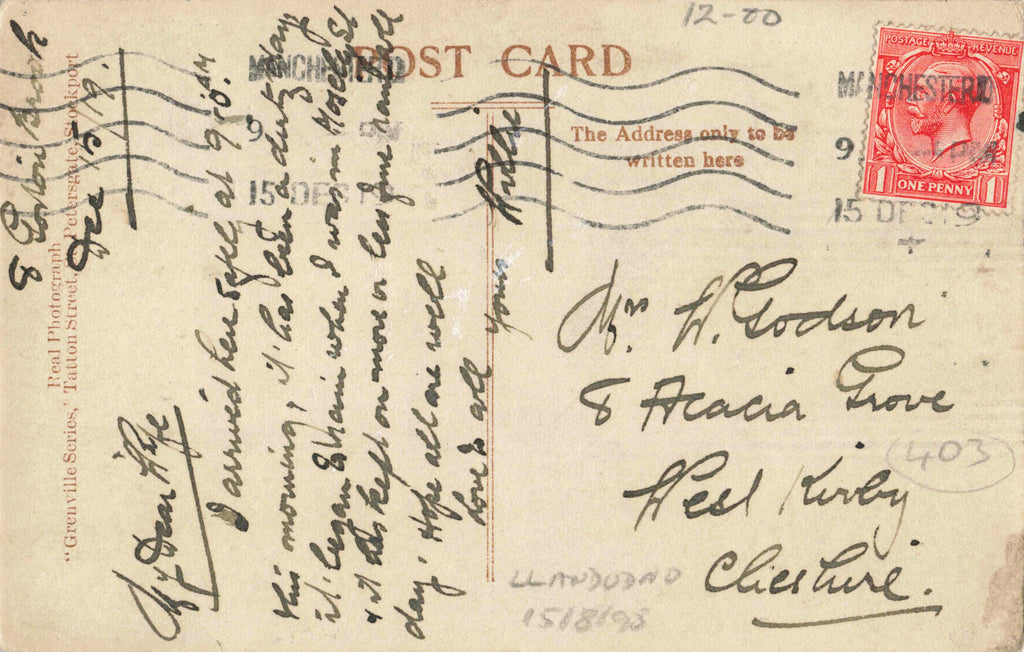 POST CARD
The Address only to be
written here
POSTAGE REVENUE
1 ONE PENNY 1
MANCHESTER
9
15 DEC 19
MANCHESTER
9
15 DEC 19
12-00
Real Photograph
"Grenville Series," Tatton Street, Petersgate, Stockport
8 Brow
Dec 15/19.
My Dear Wife
I arrived here safely at 9.0 am
this morning, it has been a dirty day
it began to rain when I was in Moseley St
& it has kept on more or less fine rain all
day, Hope all are well
love to all
yours Willie
Mrs W. Godson
8 Acacia Grove
West Kirby
Cheshire.
403
LLANDUDNO
15/8/98